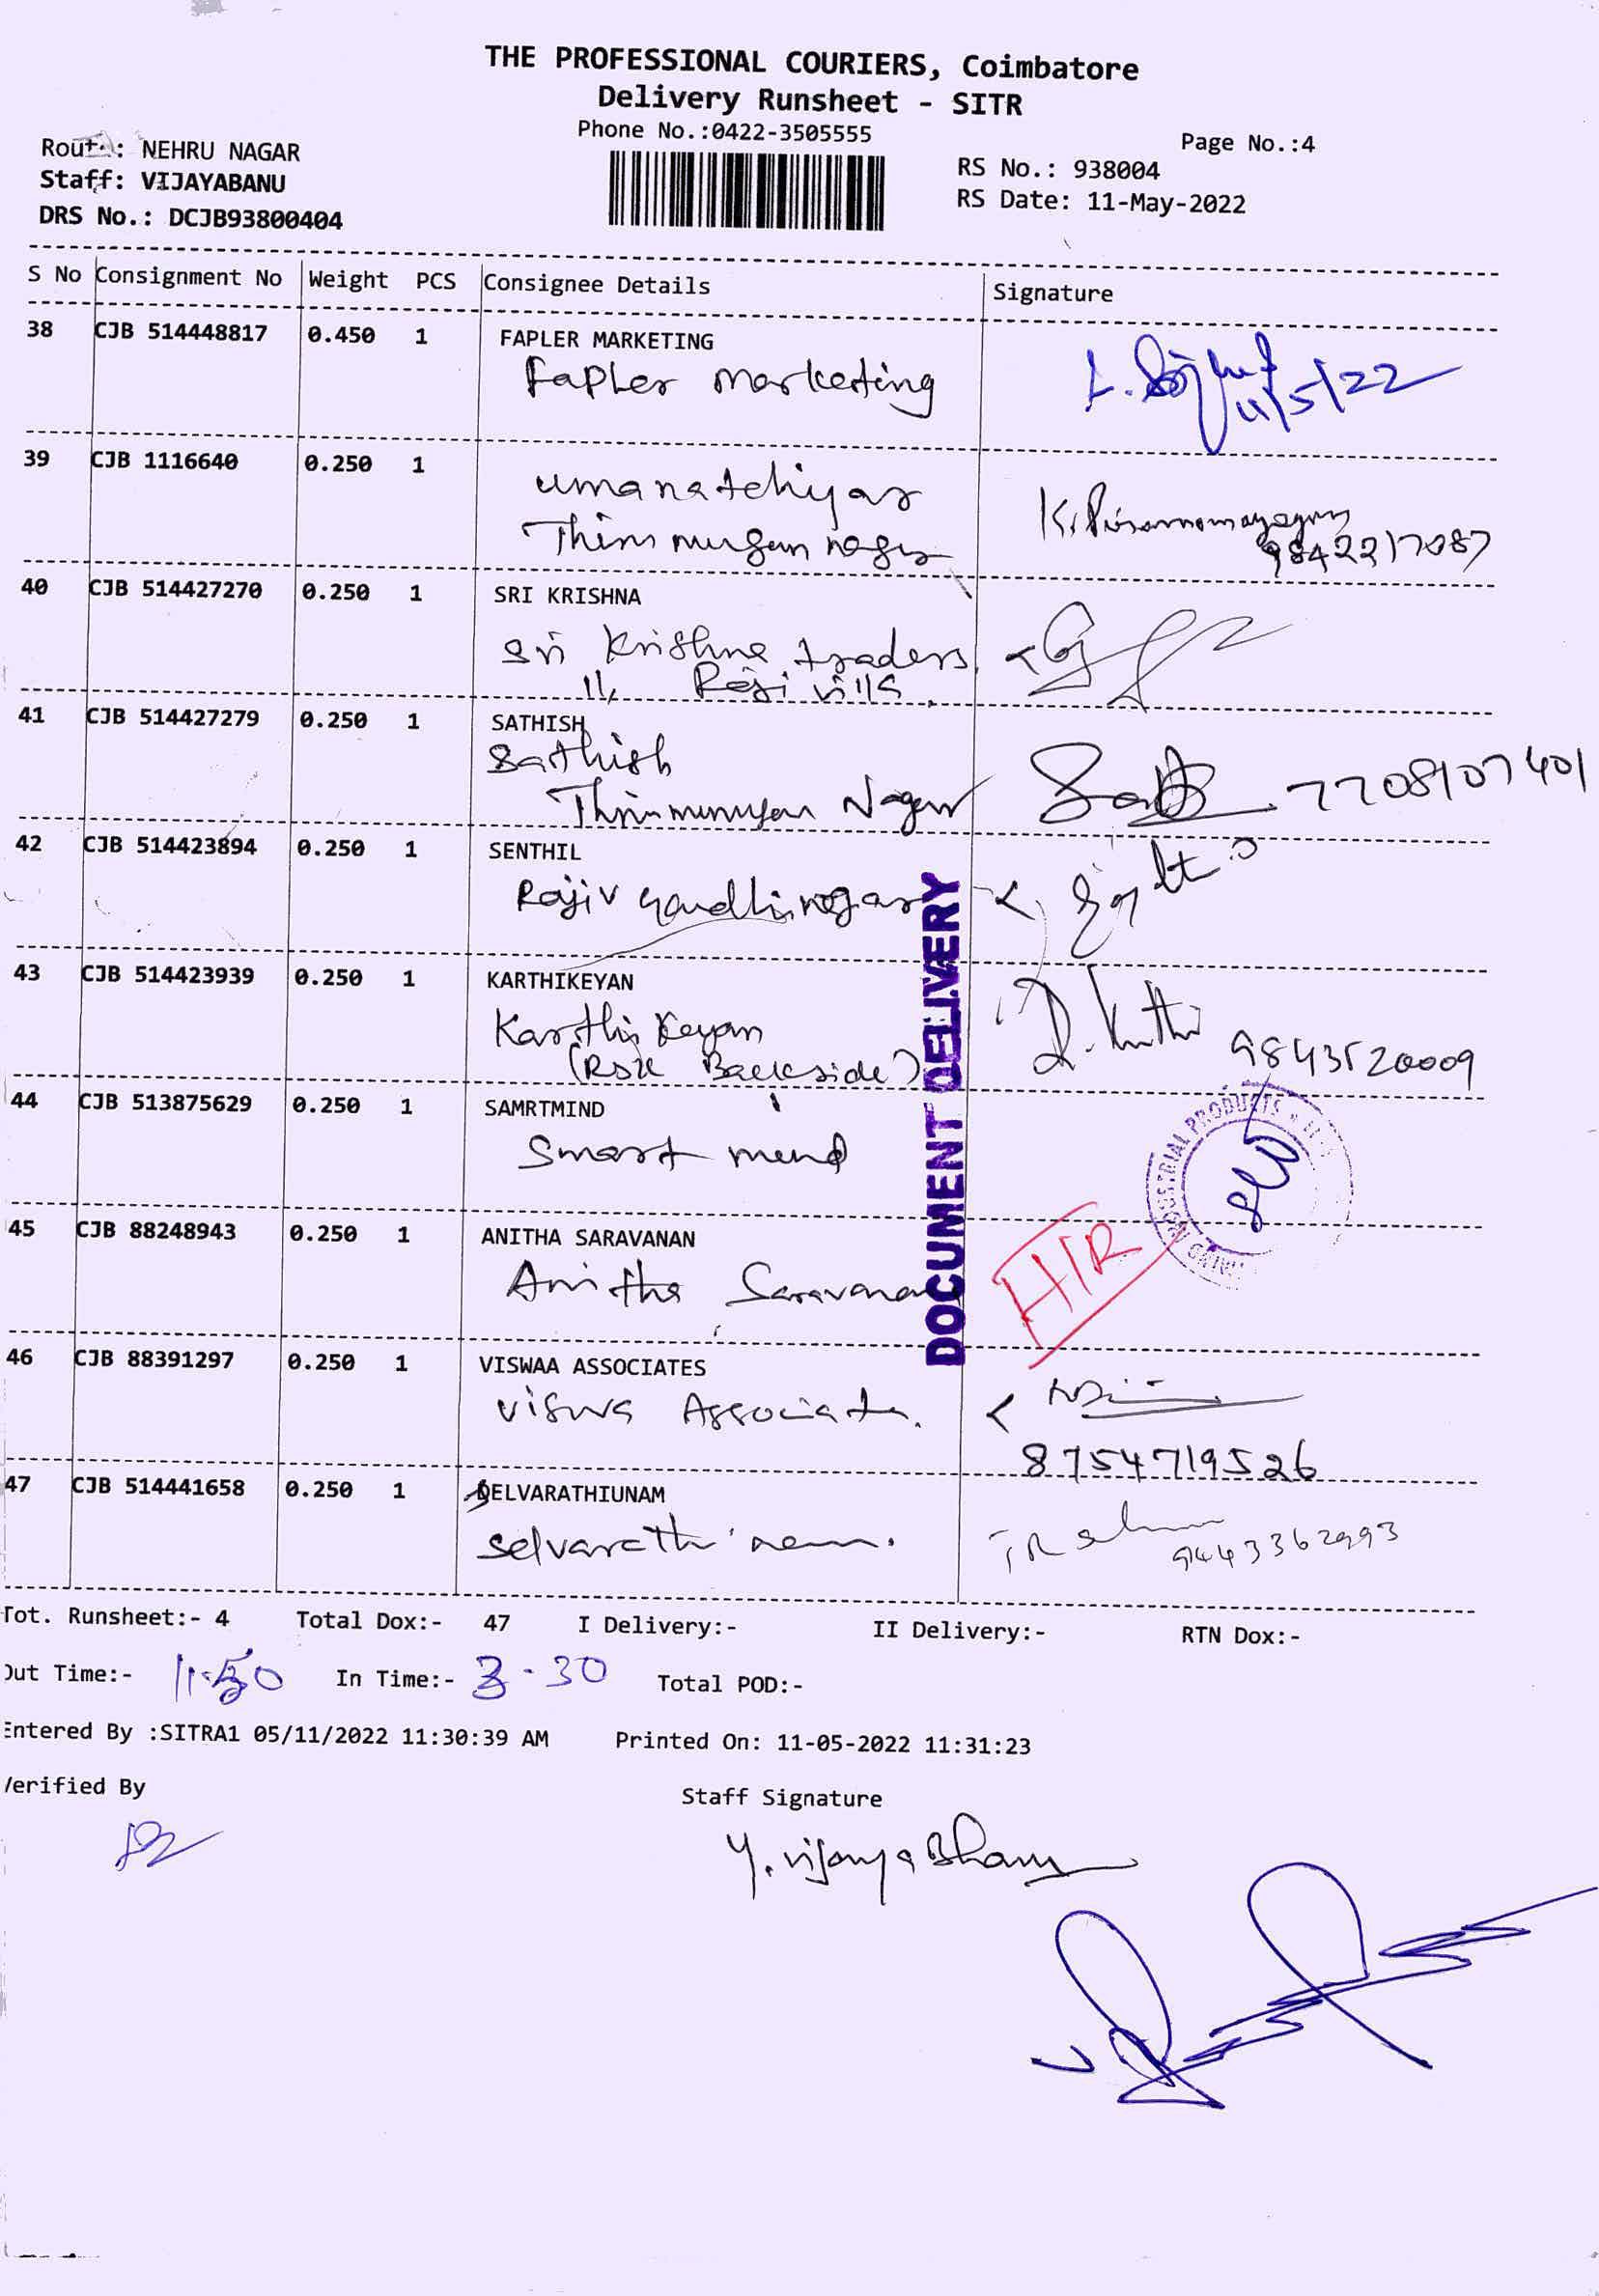 THE PROFESSIONAL COURIERS, Coimbatore
Delivery Runsheet - SITR
Phone No.:0422-3505555
Page No.:4
Route: NEHRU NAGAR
RS No.: 938004
Staff: VIJAYABANU
RS Date: 11-May-2022
DRS No.: DCJB93800404
S No Consignment No Weight PCS Consignee Details Signature
38 CJB 514448817 0.450 1 FAPLER MARKETING
Fapler marketing
11/5/22
39 CJB 1116640 0.250 1
umanatchiyar
9842217087
40 CJB 514427270 0.250 1 SRI KRISHNA
Sri Krishna traders
11, Raji villa
41 CJB 514427279 0.250 1 SATHISH
Sathish
Nagar 7708107401
42 CJB 514423894 0.250 1 SENTHIL
Rajiv gandhi nagar
43 CJB 514423939 0.250 1 KARTHIKEYAN
Karthikeyan
Backside) 9843520009
44 CJB 513875629 0.250 1 SAMRTMIND
Smart mind
INDUSTRIAL PRODUCTS
45 CJB 88248943 0.250 1 ANITHA SARAVANAN
Anitha Saravanan
H/R
DOCUMENT DELIVERY
46 CJB 88391297 0.250 1 VISWAA ASSOCIATES
8754719526
47 CJB 514441658 0.250 1 SELVARATHIUNAM
9443362993
Tot. Runsheet:- 4 Total Dox:- 47 I Delivery:- II Delivery:- RTN Dox:-
Out Time:- 11.50 In Time:- 3.30 Total POD:-
Entered By :SITRA1 05/11/2022 11:30:39 AM Printed On: 11-05-2022 11:31:23
Verified By
Staff Signature
Y. vijaya Bhanu